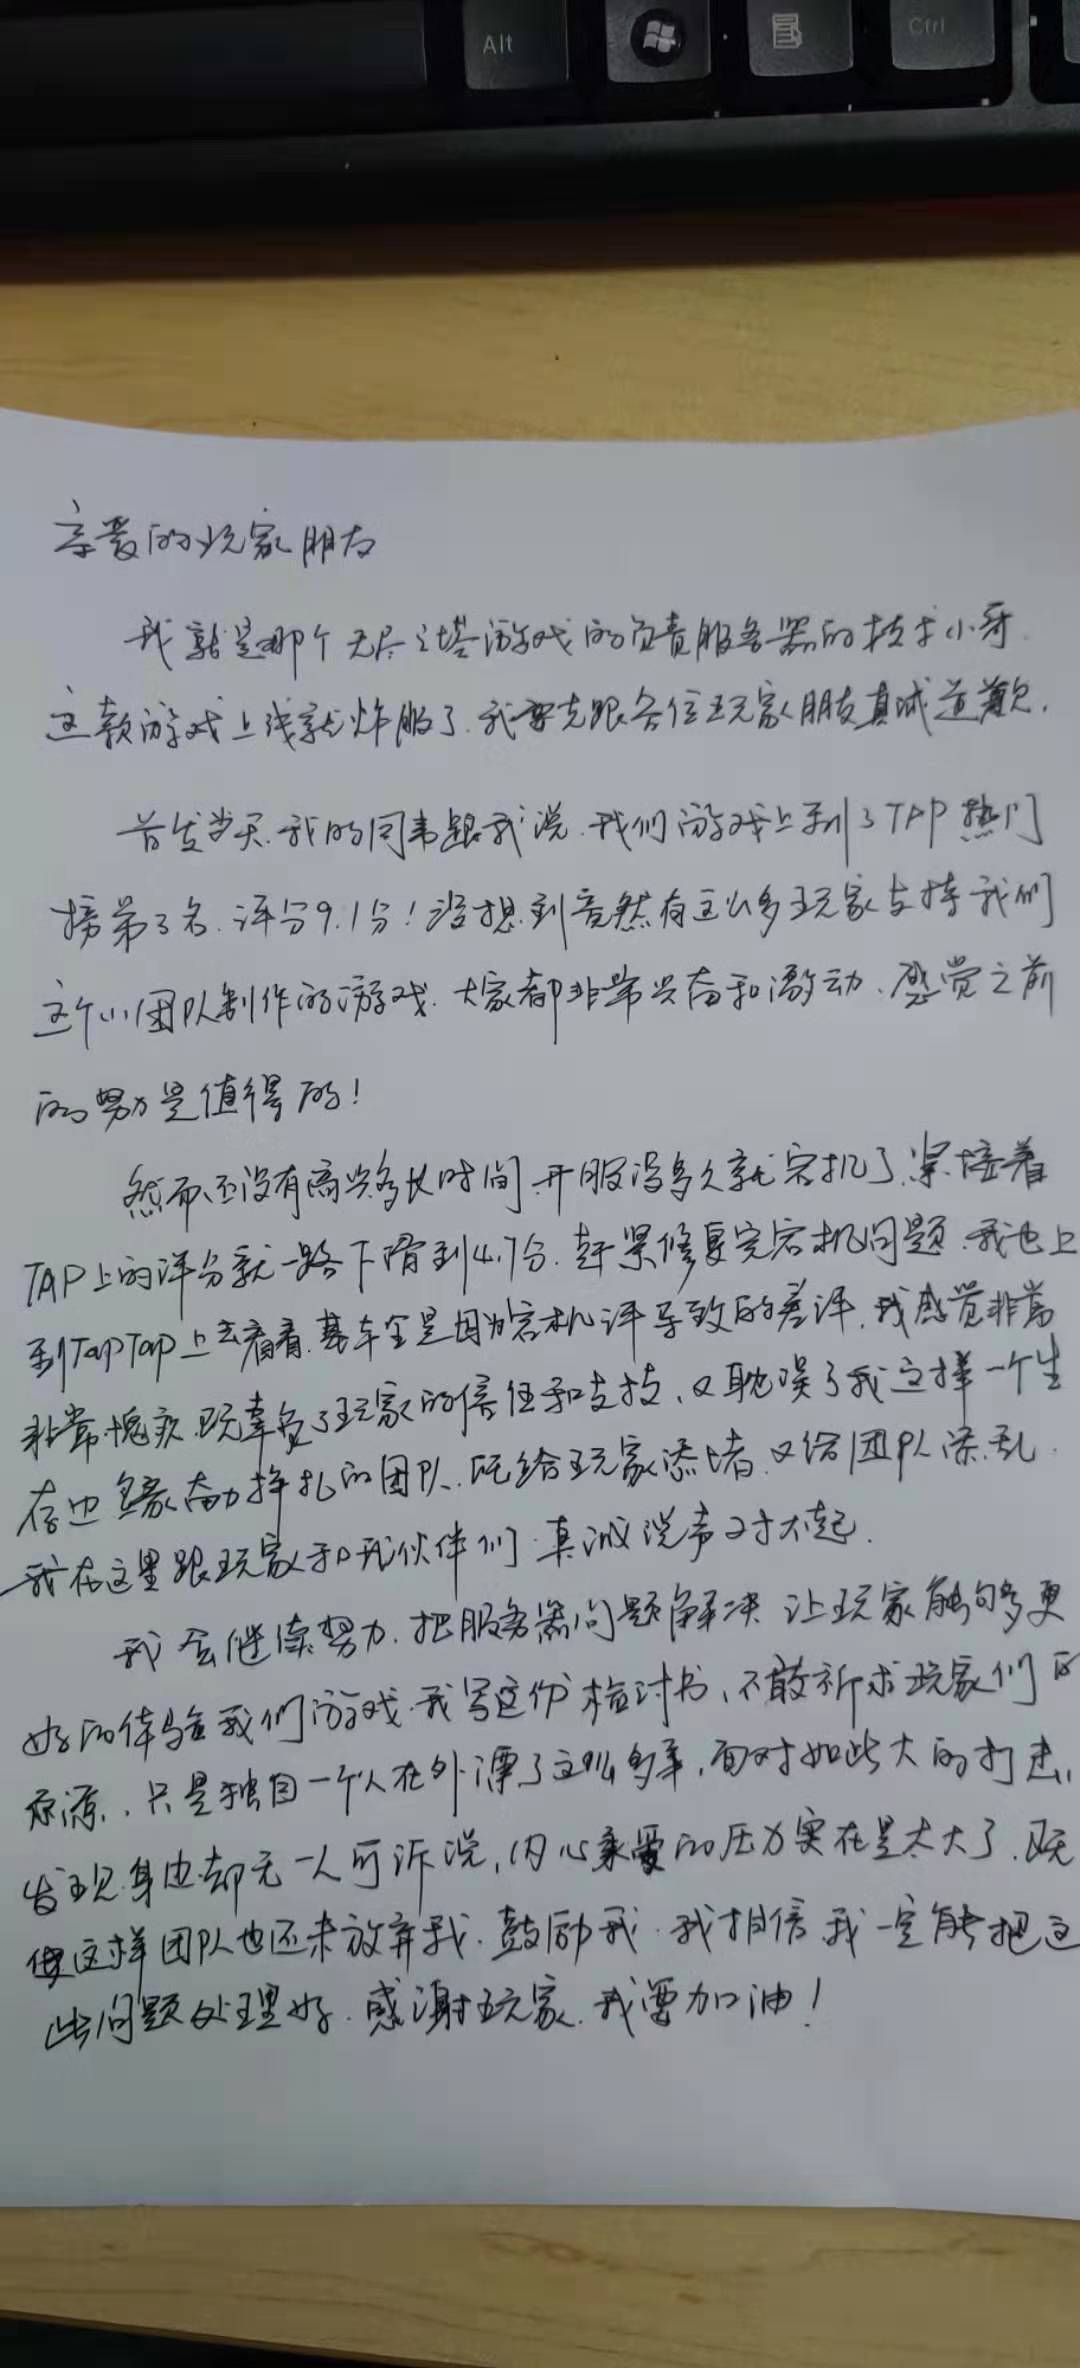 Alt
Ctrl
亲爱的玩家朋友
我就是那个无尽之塔游戏的负责服务器的技术小哥.
这款游戏上线就炸服了.我要先跟各位玩家朋友真诚道歉.
首发当天.我的同事跟我说.我们游戏上到了TAP热门
榜第3名.评分9.1分!没想到竟然有这么多玩家支持我们
这个小团队制作的游戏.大家都非常兴奋和激动.感觉之前
的努力是值得的!
然而还没有高兴多长时间.开服没多久就宕机了.紧接着
TAP上的评分就一路下滑到4.7分.赶紧修复完宕机问题.我也上
到TapTap上去看看.基本全是因为宕机评导致的差评.我感觉非常
非常愧疚.既辜负了玩家的信任和支持,又耽误了我这样一个生
存边缘奋力挣扎的团队.既给玩家添堵.又给团队添乱.
我在这里跟玩家和我伙伴们.真诚说声对不起.
我会继续努力.把服务器问题解决 让玩家能够多更
好的体验我们游戏.我写这份检讨书,不敢祈求玩家们的
原谅.只是独自一个人在外漂了这么多年,面对如此大的打击,
发现身边却无一人可诉说,内心承受的压力实在是太大了.既
使这样团队也还未放弃我.鼓励我.我相信我一定能把这
些问题处理好.感谢玩家.我要加油!